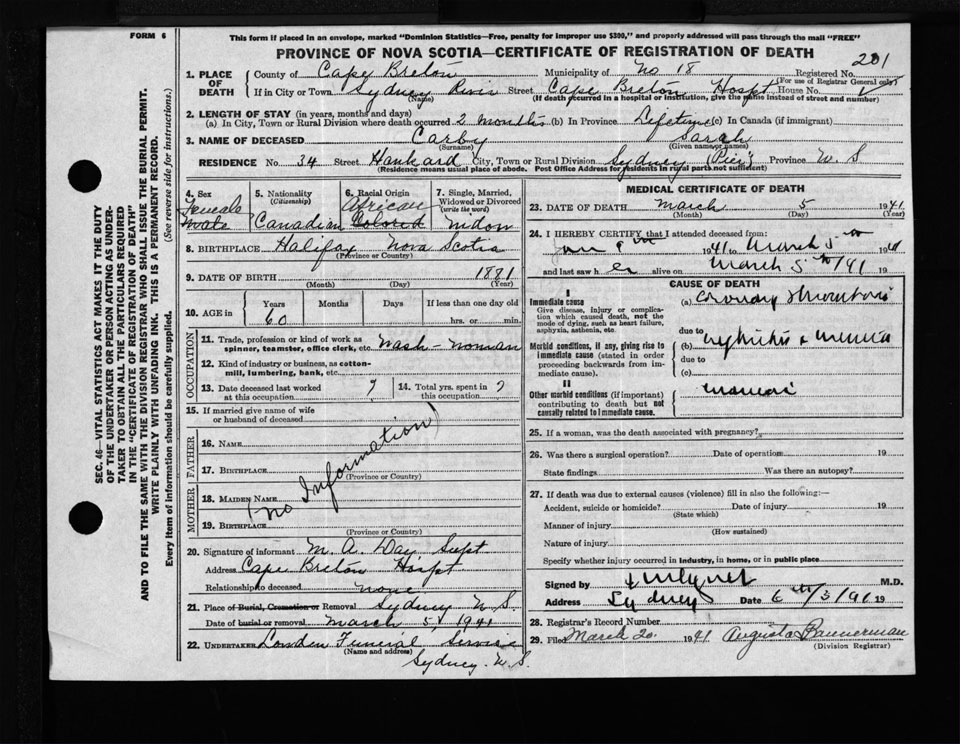 FORM 6
This form if placed in an envelope, marked "Dominion Statistics—Free, penalty for improper use $300," and properly addressed will pass through the mail "FREE"
PROVINCE OF NOVA SCOTIA—CERTIFICATE OF REGISTRATION OF DEATH
201
1. PLACE OF DEATH
County of Cape Breton Municipality of No 18 Registered No.
(For use of Registrar General only)
If in City or Town Sydney River Street Cape Breton Hospt House No.
(Name) (If death occurred in a hospital or institution, give the name instead of street and number)
2. LENGTH OF STAY (in years, months and days)
(a) In City, Town or Rural Division where death occurred 2 months (b) In Province Lifetime (c) In Canada (if immigrant)
3. NAME OF DECEASED Carby Sarah
(Surname) (Given name or names)
RESIDENCE No. 34 Street Hankard City, Town or Rural Division Sydney (Pier) Province N. S
(Residence means usual place of abode. Post Office Address for residents in rural parts not sufficient)
4. Sex Female
5. Nationality (Citizenship) Canadian
6. Racial Origin African Colored
7. Single, Married, Widowed or Divorced (write the word) widow
8. BIRTHPLACE Halifax Nova Scotia
(Province or Country)
9. DATE OF BIRTH 1881
(Month) (Day) (Year)
10. AGE in Years Months Days If less than one day old
60 hrs. or min.
OCCUPATION
11. Trade, profession or kind of work as spinner, teamster, office clerk, etc. Wash-woman
12. Kind of industry or business, as cotton-mill, lumbering, bank, etc.
13. Date deceased last worked at this occupation ?
14. Total yrs. spent in this occupation ?
15. If married give name of wife or husband of deceased
FATHER
16. NAME
17. BIRTHPLACE
(Province or Country)
MOTHER
18. MAIDEN NAME
19. BIRTHPLACE
(Province or Country)
(no Information)
20. Signature of informant M. A. Day Supt
Address Cape Breton Hospt
Relationship to deceased none
21. Place of Burial, Cremation or Removal Sydney N. S.
Date of burial or removal March 5, 1941
22. UNDERTAKER Lowden Funeral Service
(Name and address)
Sydney. N. S.
MEDICAL CERTIFICATE OF DEATH
23. DATE OF DEATH March 5 1941
(Month) (Day) (Year)
24. I HEREBY CERTIFY that I attended deceased from:
1941 to March 5th 1941
and last saw h er alive on March 5th /41 19
CAUSE OF DEATH
I
Immediate cause
Give disease, injury or complication which caused death, not the mode of dying, such as heart failure, asphyxia, asthenia, etc.
(a) Coronary Thrombosis
due to
Morbid conditions, if any, giving rise to immediate cause (stated in order proceeding backwards from immediate cause).
(b) nephritis +
due to
(c)
II
Other morbid conditions (if important) contributing to death but not causally related to immediate cause.
25. If a woman, was the death associated with pregnancy?
26. Was there a surgical operation? Date of operation 19
State findings Was there an autopsy?
27. If death was due to external causes (violence) fill in also the following:—
Accident, suicide or homicide? Date of injury 19
(State which)
Manner of injury
(How sustained)
Nature of injury
Specify whether injury occurred in industry, in home, or in public place
Signed by M.D.
Address Sydney Date 6th/3/41 19
28. Registrar's Record Number
29. Filed March 20. 1941 Augusta Bannerman
(Division Registrar)
SEC. 46—VITAL STATISTICS ACT MAKES IT THE DUTY
OF THE UNDERTAKER OR PERSON ACTING AS UNDER-
TAKER TO OBTAIN ALL THE PARTICULARS REQUIRED
IN THE "CERTIFICATE OF REGISTRATION OF DEATH"
AND TO FILE THE SAME WITH THE DIVISION REGISTRAR WHO SHALL ISSUE THE BURIAL PERMIT.
WRITE PLAINLY WITH UNFADING INK. THIS IS A PERMANENT RECORD.
Every item of information should be carefully supplied. (See reverse side for instructions.)